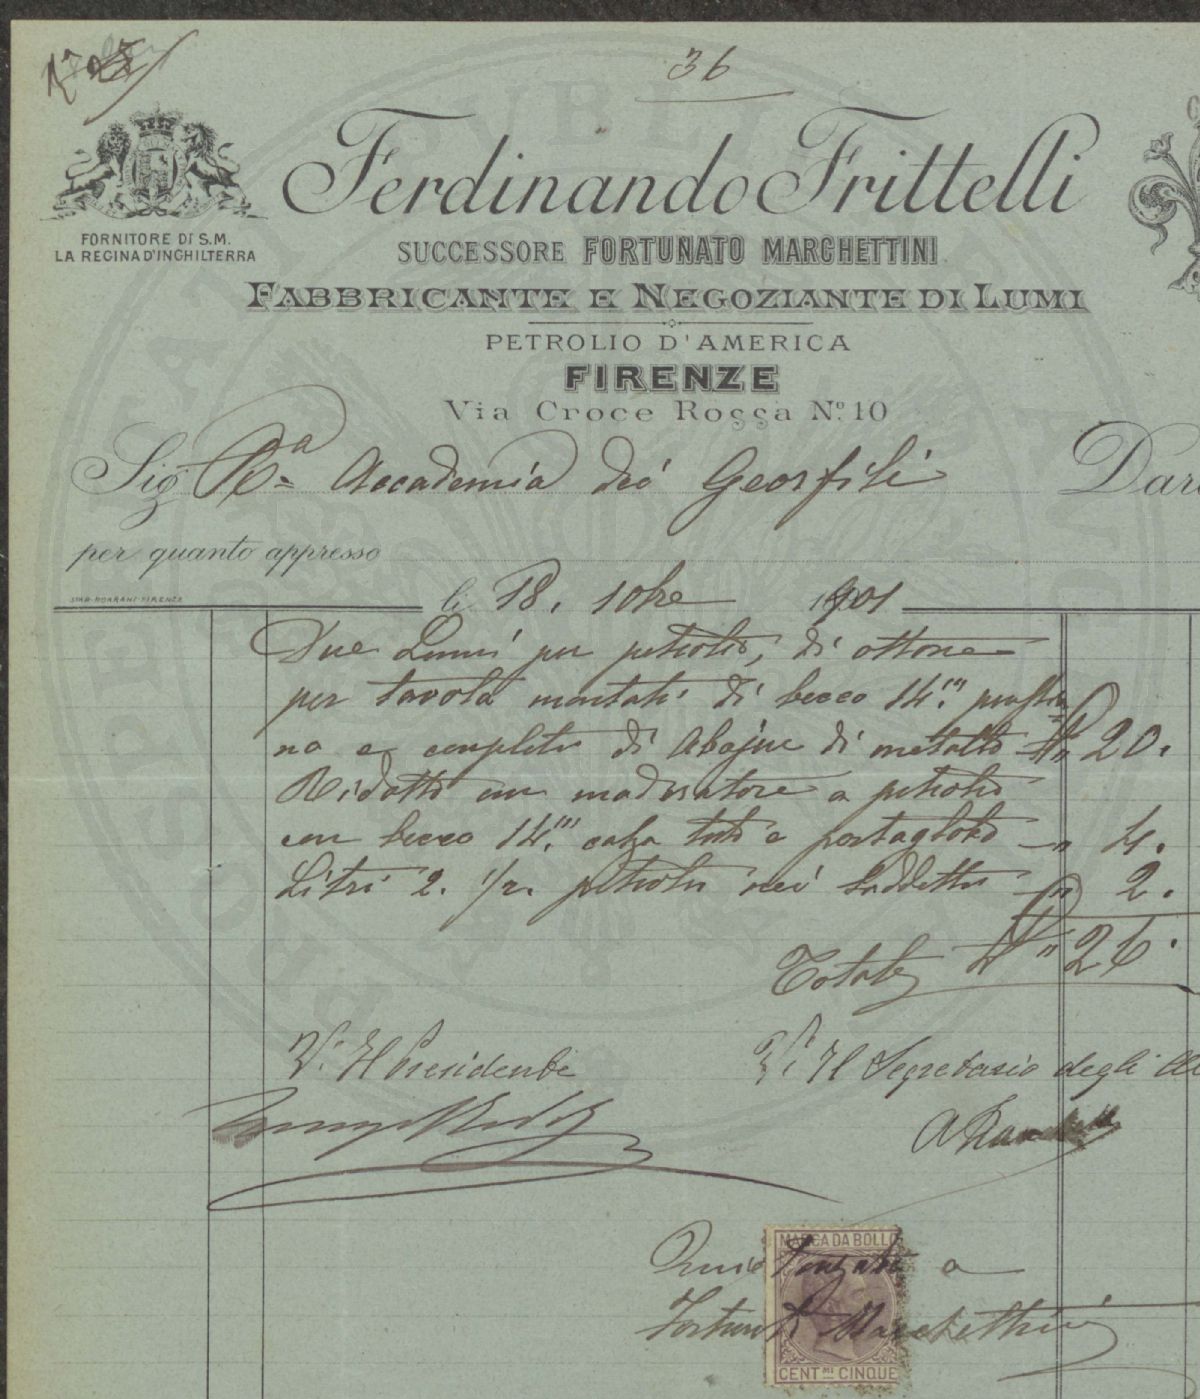 36
Ferdinando Frittelli
FORNITORE DI S.M.
LA REGINA D'INGHILTERRA
SUCCESSORE FORTUNATO MARCHETTINI
FABBRICANTE E NEGOZIANTE DI LUMI
PETROLIO D'AMERICA
FIRENZE
Via Croce Rossa Nº. 10
Sig. Rª Accademia dei Georfili Dare
per quanto appresso
STAB. BORRANI-FIRENZE
li 18. 10bre 1901
Due Lumi per petrolio, di ottone
per tavola montati di becco 14"'
no e completi di Abajur di metallo £ " 20.
Ridotto un moderatore a petrolio
con becco 14"' calza tubo e portaglobo " 4.
Litri 2. 1/2. petrolio nei suddetti " 2.
Totale £ " 26.
Vº. Il Presidente
Vº. Il Segretario degli
A
MARCA DA BOLLO
Quietanzato a
Fortunato Marchettini
CENT.MI CINQUE